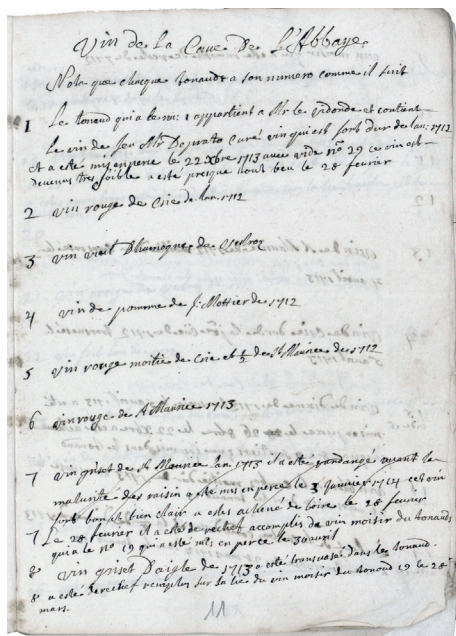 Vin de La Cave De L'Abbaye
Nota que chaque tonaud a son numero comme il suit
1 Le tonaud qui a le nu: 1 appartient a Mr le vidonde et contient
le vin de feu Mr Doprato Curé vin qui est fort dur de lan: 1712
et a esté mis en perce le 22 Xbre 1713 avec vide no 29 ce vin est
devenus tres foible a esté presque tout beu le 28 fevrier
2 vin rouge de Csie de lan. 1712
3 vin vieil D'humogne de
4 vin de pomme de Jn Mottier de 1712
5 vin rouge moitie de Csie et 1/2 de St Maurice de 1712
6 vin rouge de St Maurice 1713
7 vin griset de St Maurice lan 1713 il a esté vandangé avant la
maturité des raisin a esté mis en perce le 3 Janvier 1714 cet vin
fort bon et bien clair a esté achevé de boire le 28 fevrier
7 Le 28 fevrier il a esté de rechef accomplis de vin moisir du tonaud
qui a le no 19 qui a esté mis en perce le 30 avril
8 Vin griset D'aigle de 1713 a esté transvasé dans les tonaud.
8 a esté derechef remplis sur la lie du vin moisir du tonaud 19 le 28
mars.
11